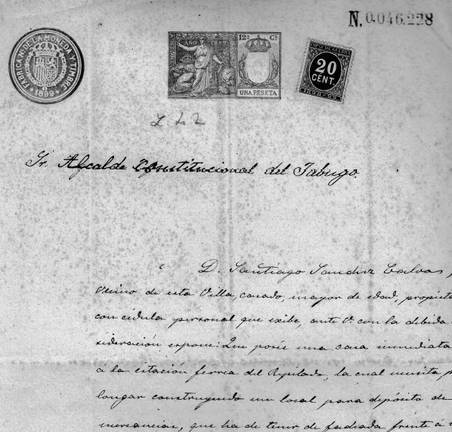 N. 0.046.228
FABRICA N. DE LA MONEDA Y TIMBRE
1899
AÑO
12ª Cl.
UNA PESETA
20
CENT.
Sr. Alcalde Constitucional del Jabugo.
D. Santiago Sanchez Calvas
vecino de esta Villa, casado, mayor de edad, propiet
con cedula personal que exibe, ante V. con la debida
sideración expone: Que posée una casa inmediata
á la estación ferrea del Repilado, la cual necesita
longar construyendo un local para depósito de
mercancias, que ha de tener de fachada frente á